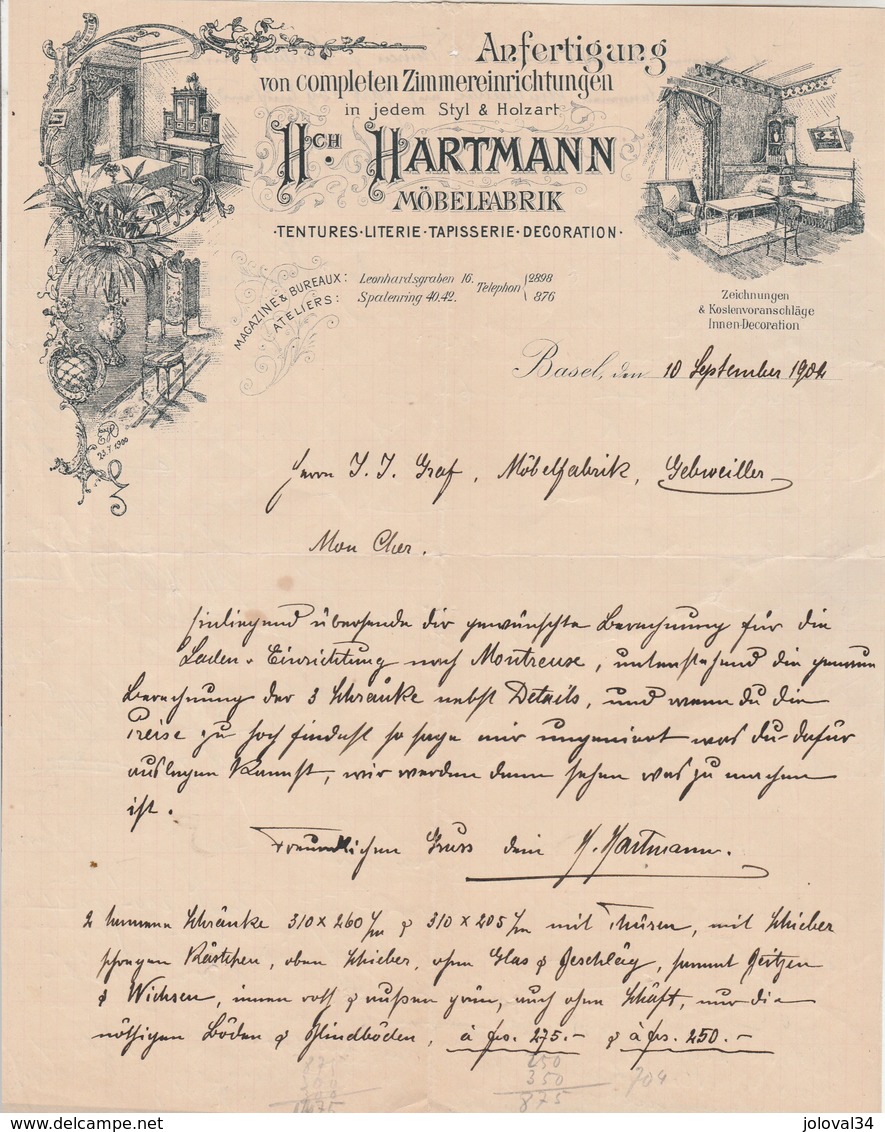 Anfertigung
von completen Zimmereinrichtungen
in jedem Styl & Holzart
Hch. HARTMANN
MÖBELFABRIK
·TENTURES·LITERIE·TAPISSERIE·DECORATION·
MAGAZINE & BUREAUX: Leonhardsgraben 16. Telephon 2898
ATELIERS: Spalenring 40.42. 876
Zeichnungen
& Kostenvoranschläge
Innen-Decoration
Basel, den 10 September 1904
23.7.1900
Herrn J. J. Graf, Möbelfabrik, Gebweiller
Mon Cher.
Einliegend übersende dir gewünschte Berechnung für die
Laden-Einrichtung nach Montreux, untenstehend die genaue
Berechnung der 3 Schränke nebst Details, und wenn du die
Preise zu hoch findest so sage mir ungeniert was du dafür
auslagen kannst, wir werden dann sehen was zu machen
ist.
Freundlichen Gruss dein H. Hartmann.
2 Schränke 310 x 260 c/m & 310 x 205 c/m mit Thüren, mit Schieber
Kästchen, oben Schieber, ohne Glas & Beschläg, sammt Beitzen
& Wichsen, innen roth & außen grün, auch ohne Schäft, nur die
nöthigen Böden & Blindböden, à frs. 275.- & à frs. 250.-
250
350
875
704
joloval34